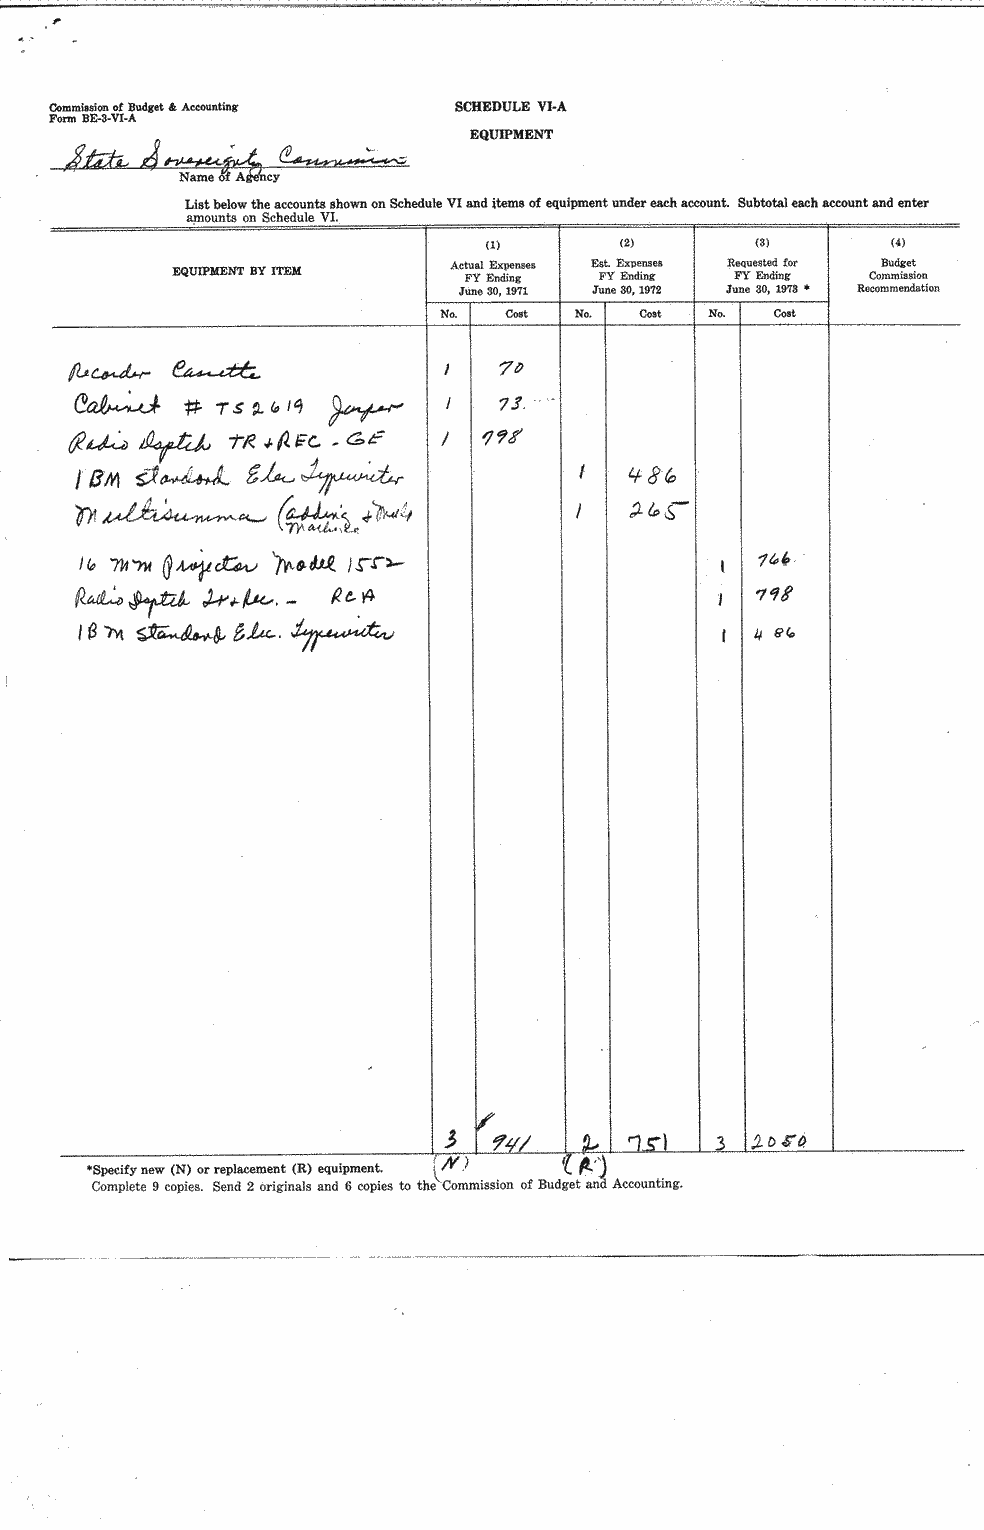 Commission of Budget & Accounting
Form BE-3-VI-A
SCHEDULE VI-A
EQUIPMENT
State Sovereignty Commission
Name of Agency
List below the accounts shown on Schedule VI and items of equipment under each account. Subtotal each account and enter
amounts on Schedule VI.
EQUIPMENT BY ITEM
(1)
Actual Expenses
FY Ending
June 30, 1971
(2)
Est. Expenses
FY Ending
June 30, 1972
(3)
Requested for
FY Ending
June 30, 1973 *
(4)
Budget
Commission
Recommendation
No. Cost No. Cost No. Cost
Recorder Cassette 1 70
Cabinet # TS2619 Jasper 1 73.
Radio Dsptch TR + REC - GE 1 798
IBM Standard Elec Typewriter 1 486
Multisumma (adding + Mult 1 265
Machine
16 MM Projector Model 1552 1 766
Radio Dsptch Tr + Rec. - RCA 1 798
IBM Standard Elec. Typewriter 1 486
3 941 2 751 3 2050
(N) (R)
*Specify new (N) or replacement (R) equipment.
Complete 9 copies. Send 2 originals and 6 copies to the Commission of Budget and Accounting.